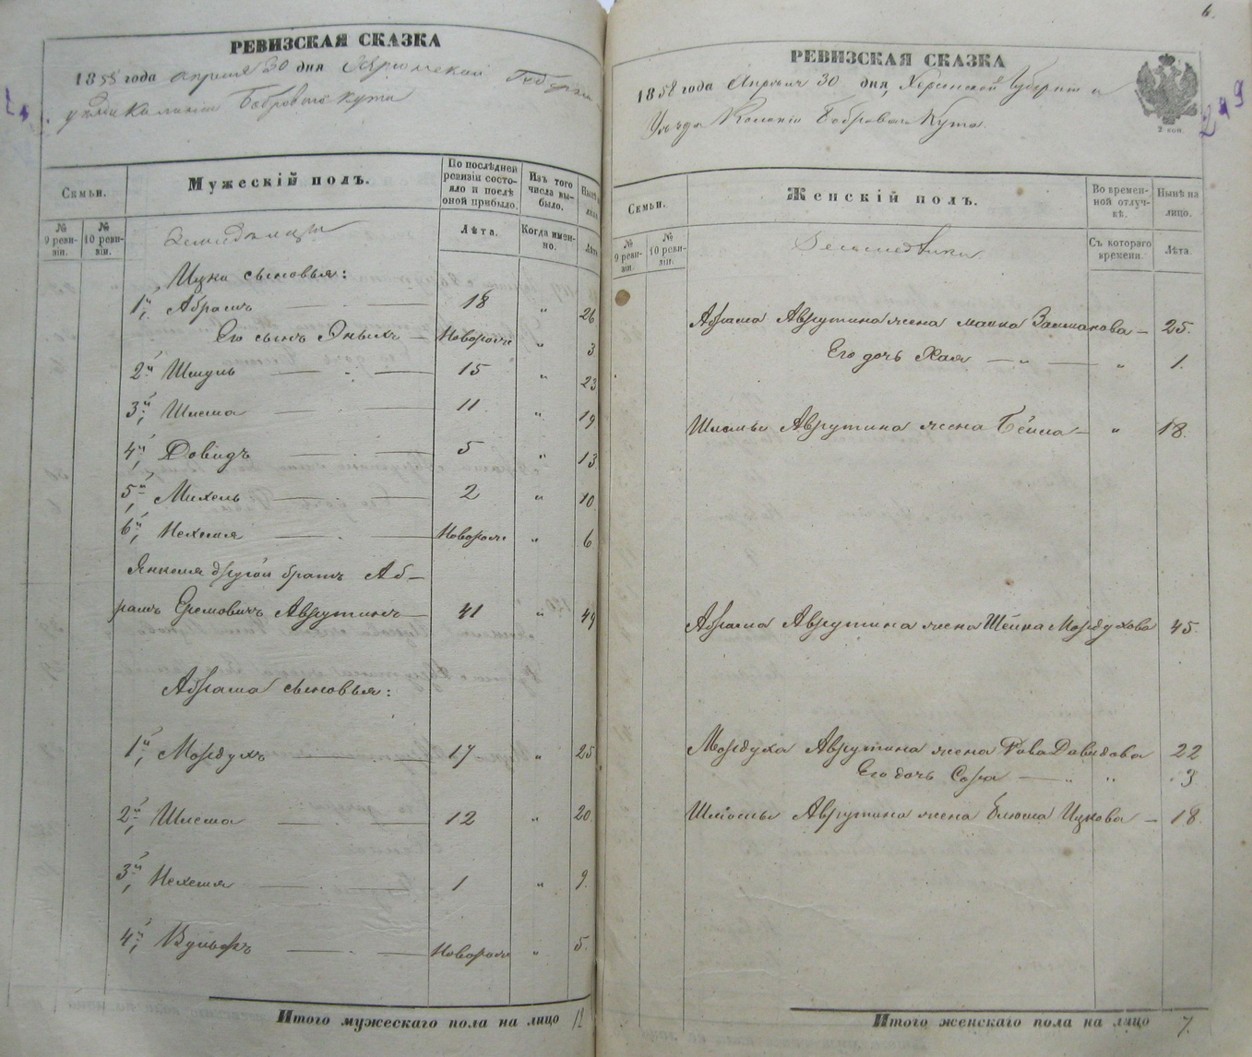 РЕВИЗСКАЯ СКАЗКА
1858 года апреля 30 дня Херсонской Губернии
уезда Колонии Бобровый Кута
Семьи.
Мужескій полъ.
По послѣдней ревизіи состояло и послѣ оной прибыло.
Изъ того числа выбыло.
Нынѣ на лицо.
№ 9 ревизіи.
№ 10 ревизіи.
Лѣта.
Когда именно.
Лѣта
Земледельцы
Ицка сыновья:
1й Абрамъ 18 " 26
Его сынъ Новорож " 3
2й Шмуль 15 " 23
3й Шлема 11 " 19
4й Довидъ 5 " 13
5й Михель 2 " 10
6й Нехемия Новорож " 6
Янкеля другой братъ Аб-
рамъ Еремовичъ Аврутинъ 41 " 49
Абрама сыновья:
1й Мордухъ 17 " 25
2й Шлема 12 " 20
3й Нехемия 1 " 9.
4й Вульфъ Новорож " 5.
Итого мужескаго пола на лицо 12
6.
РЕВИЗСКАЯ СКАЗКА
1858 года Апреля 30 дня, Херсонской Губернии
Уезда Колонии Бобровый Кута.
2 коп.
249
Семьи.
Женскій полъ.
Во временной отлучкѣ.
Нынѣ на лицо.
№ 9 ревизіи.
№ 10 ревизіи.
Съ котораго времени.
Лѣта.
Абрама Аврутина жена Малка 25.
Его дочь Хая " 1.
Шлемы Аврутина жена Бейла " 18.
Абрама Аврутина жена Шейна Мордухова 45.
Мордуха Аврутина жена Рива Давидова 22
Его дочь Сора " 3
Шлемы Аврутина жена Блюма Ицкова 18.
Итого женскаго пола на лицо 7.